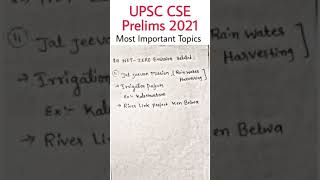 UPSC CSE
Prelims 2021
Most Important Topics
11) Jal Jeevan
Rain Water
Harvesting
→ Irrigation
Ex:- Kale
→ River Link
NET-ZERO Emission related:
Jal Jeevan Mission { Rain Water
Harvesting }
→ Irrigation Projects
Ex:- Kaleshwaram
→ River Link Project Ken Betwa
River Link Project Ken Betwa